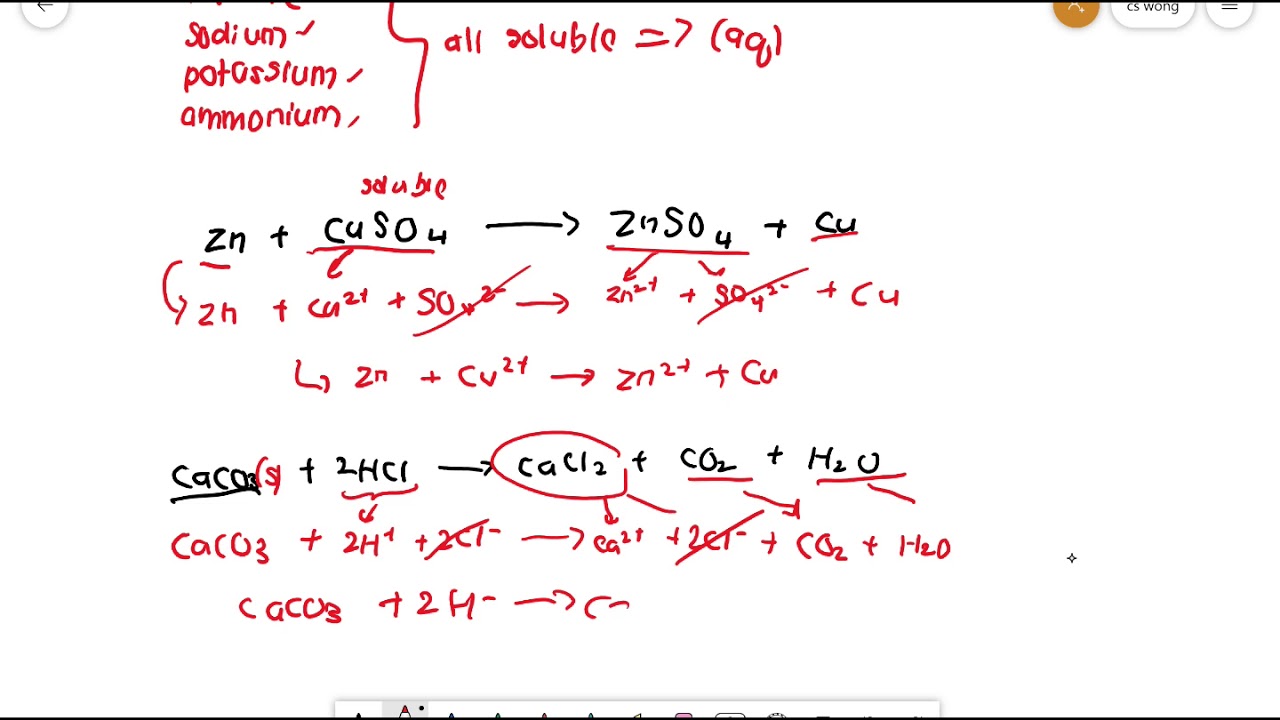 cs wong
sodium
potassium
ammonium
all soluble => (aq)
soluble
Zn + CuSO4 → ZnSO4 + Cu
Zn + Cu²⁺ + SO4²⁻ → Zn²⁺ + SO4²⁻ + Cu
Zn + Cu²⁺ → Zn²⁺ + Cu
CaCO3(s) + 2HCl → CaCl2 + CO2 + H2O
CaCO3 + 2H⁺ + 2Cl⁻ → Ca²⁺ + 2Cl⁻ + CO2 + H2O
CaCO3 + 2H⁻ → C